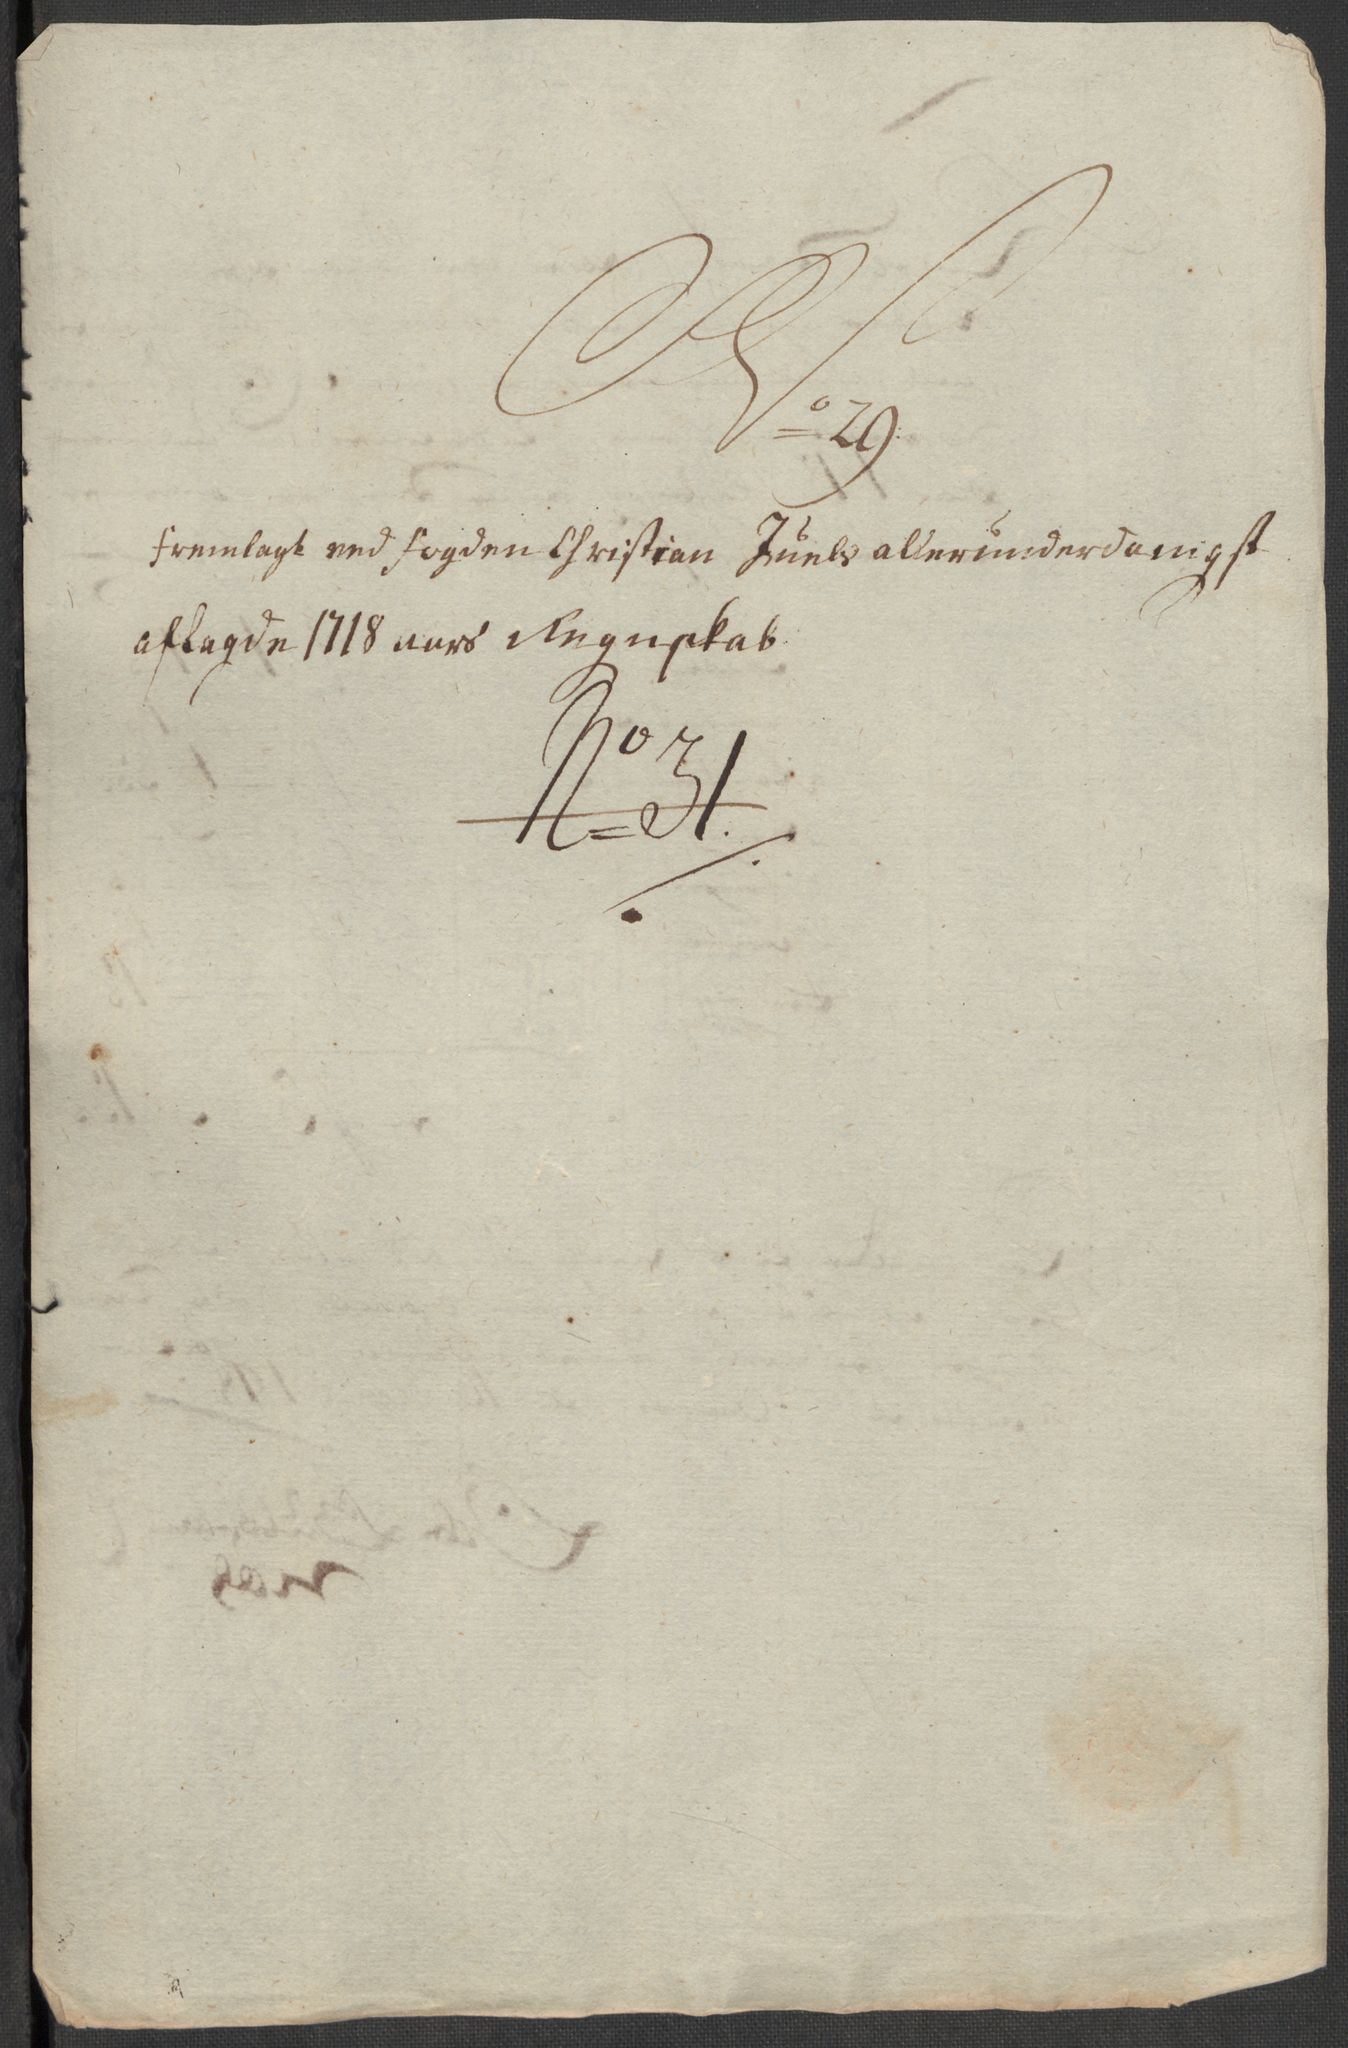 No 29
Fremlagt ved Fogden Christian Juels allerunderdanigst
aflagde 1718 aars Regnskab
No 31.